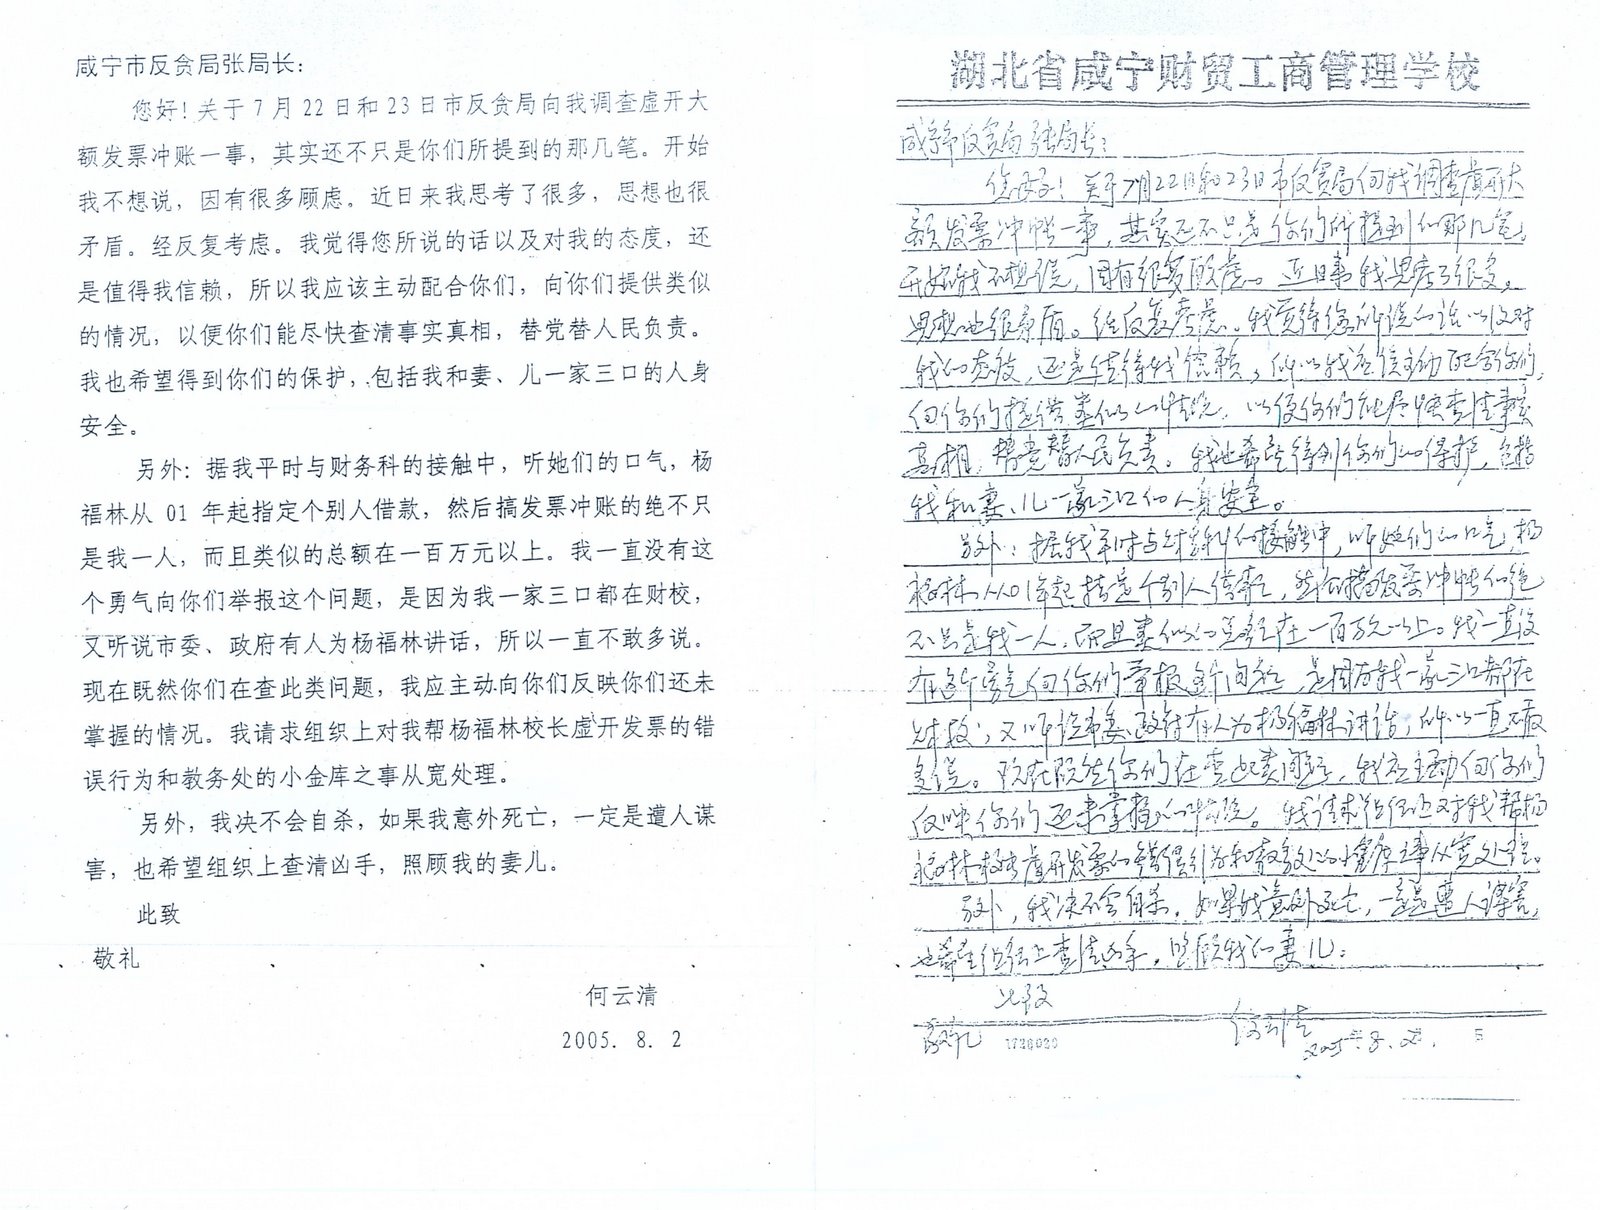 咸宁市反贪局张局长：
您好！关于7月22日和23日市反贪局向我调查虚开大
额发票冲账一事，其实还不只是你们所提到的那几笔。开始
我不想说，因有很多顾虑。近日来我思考了很多，思想也很
矛盾。经反复考虑。我觉得您所说的话以及对我的态度，还
是值得我信赖，所以我应该主动配合你们，向你们提供类似
的情况，以便你们能尽快查清事实真相，替党替人民负责。
我也希望得到你们的保护，包括我和妻、儿一家三口的人身
安全。
另外：据我平时与财务科的接触中，听她们的口气，杨
福林从 01 年起指定个别人借款，然后搞发票冲账的绝不只
是我一人，而且类似的总额在一百万元以上。我一直没有这
个勇气向你们举报这个问题，是因为我一家三口都在财校，
又听说市委、政府有人为杨福林讲话，所以一直不敢多说。
现在既然你们在查此类问题，我应主动向你们反映你们还未
掌握的情况。我请求组织上对我帮杨福林校长虚开发票的错
误行为和教务处的小金库之事从宽处理。
另外，我决不会自杀，如果我意外死亡，一定是遭人谋
害，也希望组织上查清凶手，照顾我的妻儿。
此致
敬礼
何云清
2005. 8. 2
湖北省咸宁财贸工商管理学校
咸宁市反贪局张局长：
您好！关于7月22日和23日市反贪局向我调查虚开大
额发票冲帐一事，其实还不只是你们所提到的那几笔。
开始我不想说，因有很多顾虑。近日来我思考了很多，
思想也很矛盾。经反复考虑。我觉得您所说的话以及对
我的态度，还是值得我信赖，所以我应该主动配合你们，
向你们提供类似的情况，以便你们能尽快查清事实
真相，替党替人民负责。我也希望得到你们的保护，包括
我和妻、儿一家三口的人身安全。
另外：据我平时与财务科的接触中，听她们的口气，杨
福林从01年起指定个别人借款，然后搞发票冲帐的绝
不只是我一人，而且类似的总额在一百万元以上。我一直没
有这个勇气向你们举报这个问题，是因为我一家三口都在
财校，又听说市委、政府有人为杨福林讲话，所以一直不敢
多说。现在既然你们在查此类问题，我应主动向你们
反映你们还未掌握的情况。我请求组织上对我帮杨
福林校长虚开发票的错误行为和教务处的小金库之事从宽处理。
另外，我决不会自杀，如果我意外死亡，一定是遭人谋害，
也希望组织上查清凶手，照顾我的妻儿。
此致
敬礼
1720030
何云清
2005年8.2
5